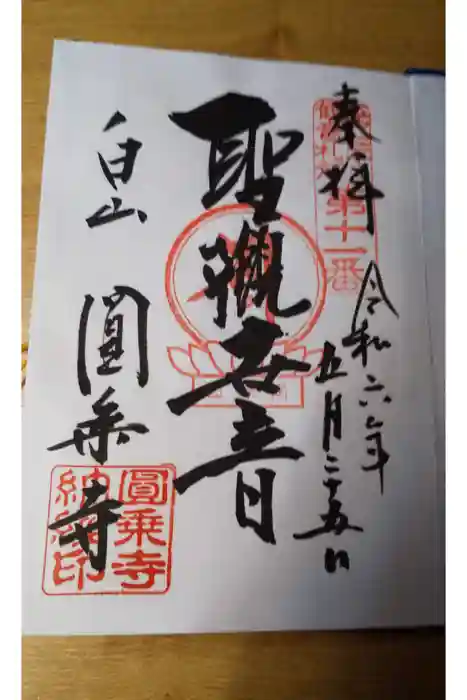 奉拝
第十一番
令和六年
五月二十五日
聖觀世音
白山
圓乗寺
圓乗寺
納經印